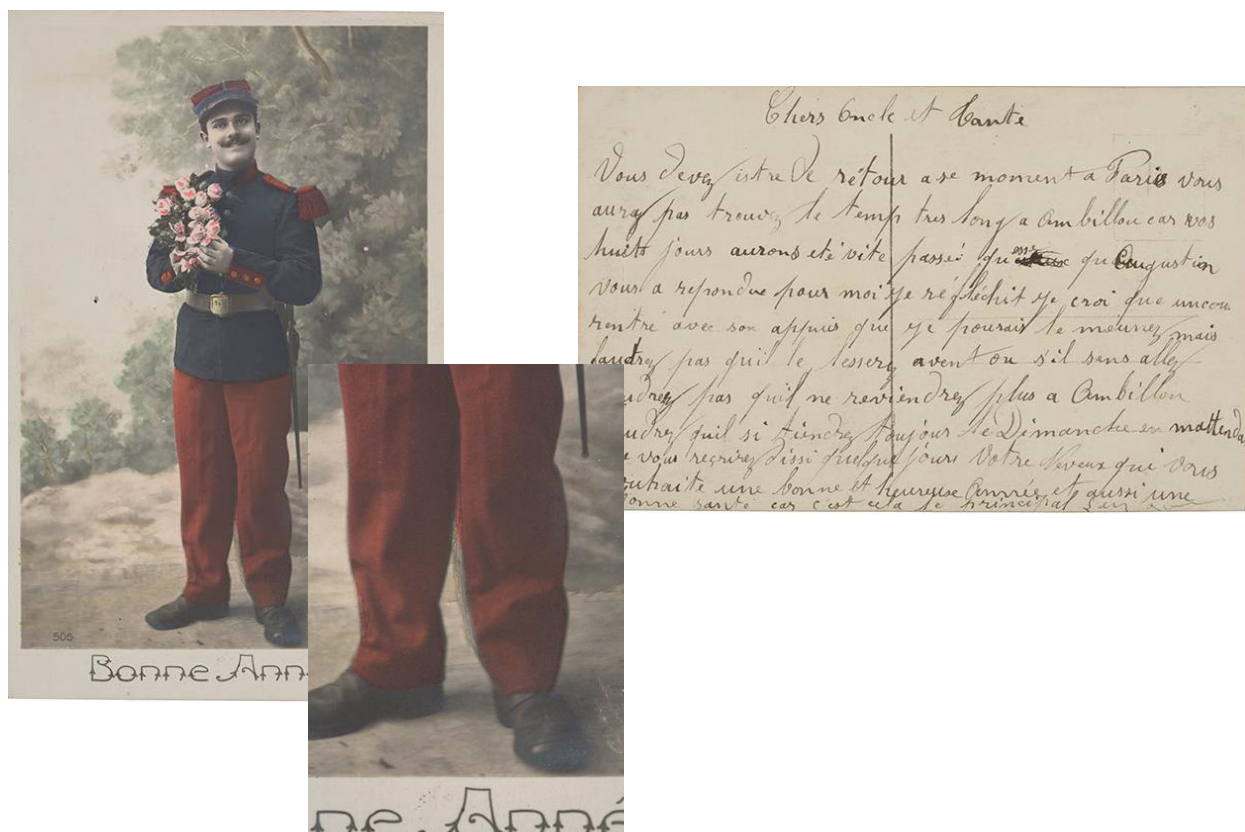 505
Bonne Ann
ne Anné
Chers Oncle et Tante
Vous devez istre de rétour a se moment a Paris vous
aurez pas trouvez le temp tres long a Ambillou car vos
huits jours aurons eté vite passé! que qu'Augustin
vous a repondue pour moi je réfléchit je croi que
rentré avec son appuis que je pourais le mais
pas quil le lessery avent ou s'il sans allez
pas quil ne reviendrez plus a Ambillou
quil si tiendrez toujours le Dimanche en mattenda
vous reqrirez dissi quelque jours Votre Neveux qui vous
une bonne et heureuse Année et aussi une
bonne santé car c'est cela le principal